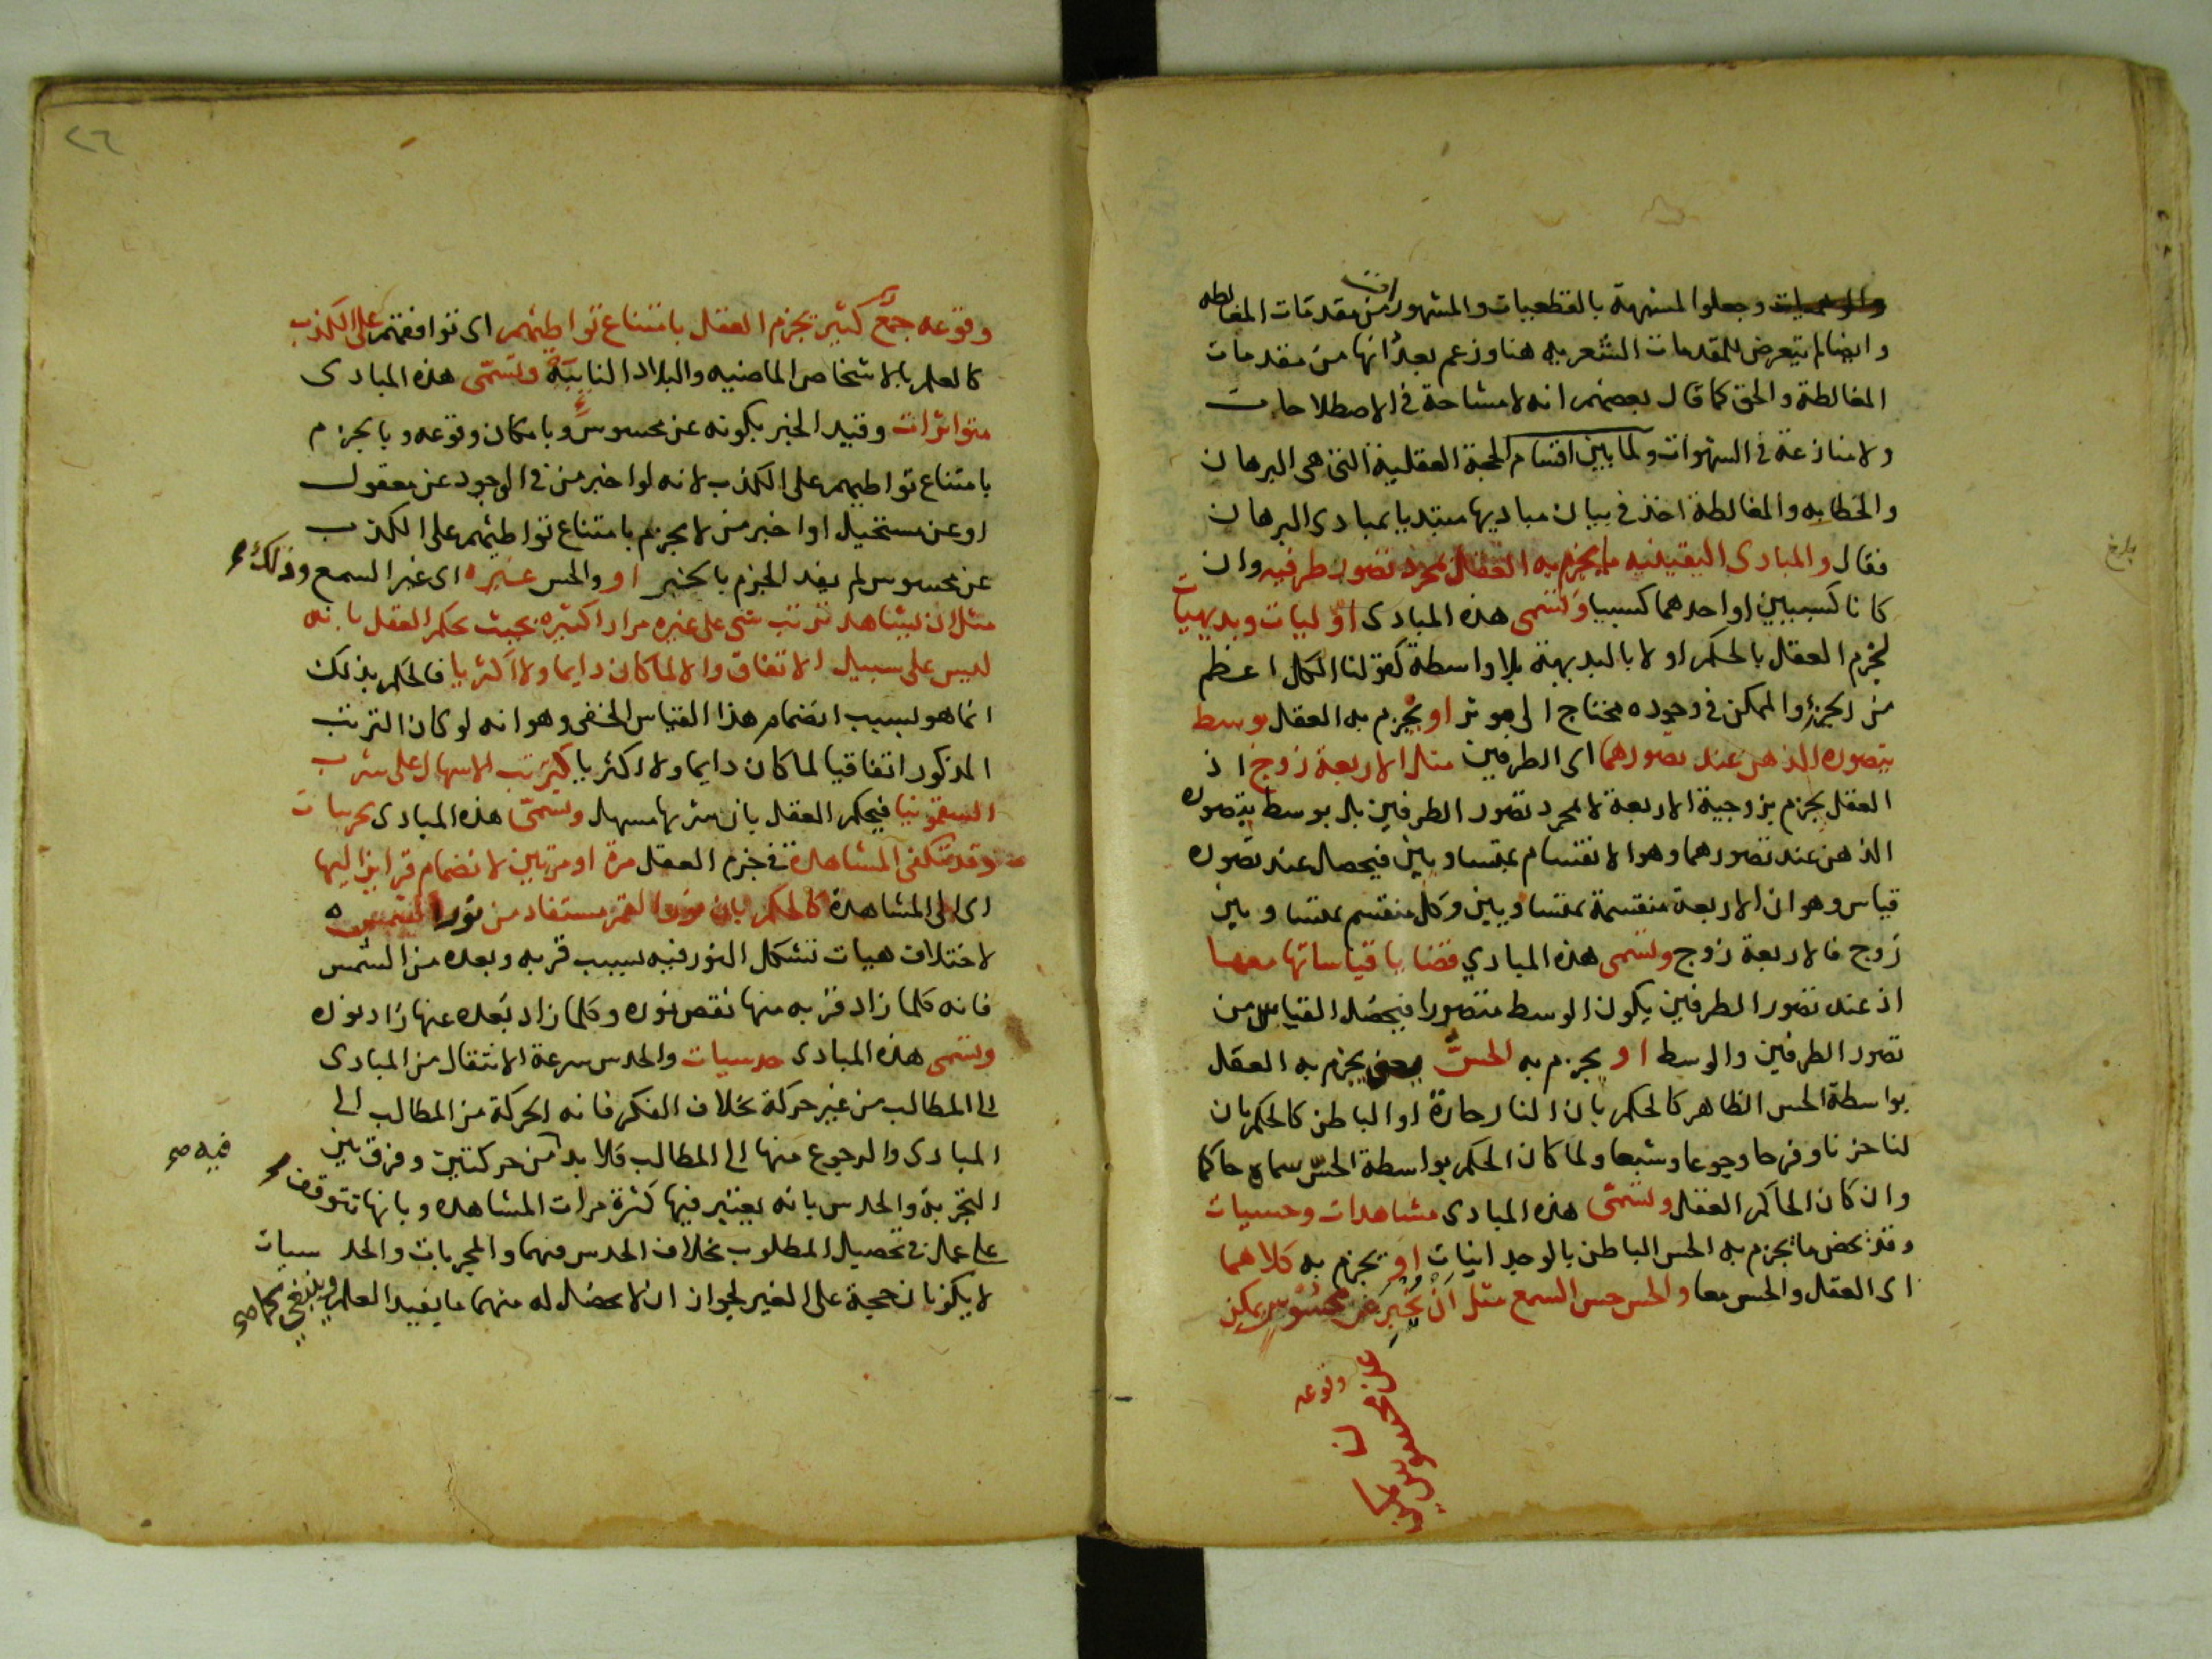 وجعلوا المشبهة بالقطعيات والمشهورات من مقدمات المغالطه
وايضا لم يتعرض للمقدمات الشعريه هنا وزعم بعد انها من مقدمات
المغالطة والحق كما قال بعضهم انه لا مشاحة في الاصطلاحات
ولا منازعة في الشهوات ولما بين اقسام الحجة العقلية التي هي البرهان
والخطابه والمغالطة اخذ في بيان مباديها مبتديا بمبادى البرهان
فقال والمبادى اليقينيه ما يجزم به العقل بمجرد تصور طرفيه وان
كانا كسبيين او احدهما كسبيا وتسمى هذه المبادى اوليات وبديهيات
لجزم العقل بالحكم اولا بالبديهة بلا واسطة كقولنا الكل اعظم
من الجزء والممكن في وجوده محتاج الى موثر او يجزم به العقل بوسط
يتصوره الذهن عند تصورهما اى الطرفين مثل الاربعة زوج اذ
العقل يجزم بزوجية الاربعة لا بمجرد تصور الطرفين بل بوسط يتصوره
الذهن عند تصورهما وهو الانقسام بمتساويين فيحصل عند تصوره
قياس وهو ان الاربعة منقسمة بمتساويين وكل منقسم بمتساويين
زوج فالاربعة زوج وتسمى هذه المبادي قضايا قياساتها معها
اذ عند تصور الطرفين يكون الوسط متصورا فيحصل القياس من
تصور الطرفين والوسط او يجزم به الحس يعني يجزم به العقل
بواسطة الحس الظاهر كالحكم بان النار حارة او الباطن كالحكم بان
لنا حزنا وفرحا وجوعا وشبعا ولما كان الحكم بواسطة الحس سماه حاكما
وان كان الحاكم العقل وتسمى هذه المبادى مشاهدات وحسيات
وقد يخص ما يجزم به الحس الباطن بالوجدانيات او يجزم به كلاهما
اى العقل والحس معا والحس حس السمع مثل ان يخبر عن محسوس يمكن
عن محسوس
وقوعه
بلغ
٢٦
وقوعه جمع كثير يجزم العقل بامتناع تواطيهم اى توافقهم على الكذب
كالعلم بالاشخاص الماضيه والبلاد النايية وتسمى هذه المبادى
متواترات وقيد الخبر بكونه عن محسوس وبامكان وقوعه وبالجزم
بامتناع تواطيهم على الكذب لانه لو اخبر من في الوجود عن معقول
او عن مستحيل او اخبر من لا يجزم بامتناع تواطيهم على الكذب
عن محسوس لم يفد الجزم بالخبر او والحس غيره اى غير السمع وذلك
مثل ان يشاهد ترتب شى على غيره مرارا كثيره بحيث يحكم العقل بانه
ليس على سبيل الاتفاق والا لما كان دايما ولا اكثريا فالحكم بذلك
انما هو بسبب انضمام هذا القياس الخفى وهو انه لو كان الترتب
المذكور اتفاقيا لما كان دايما ولا اكثريا كترتب الاسهال على شرب
السقمونيا فيحكم العقل بان شربها مسهل وتسمى هذه المبادى تجربيات
وقد تكفى المشاهدة في جزم العقل مرة او مرتين لانضمام قراين اليها
اى الى المشاهدة كالحكم بان نور القمر مستفاد من نور الشمس
لاختلاف هيات تشكل النور فيه بسبب قربه وبعده من الشمس
فانه كلما زاد قربه منها نقص نوره وكلما زاد بعده عنها زاد نوره
وتسمى هذه المبادى حدسيات والحدس سرعة الانتقال من المبادى
الى المطالب من غير حركة بخلاف الفكر فانه الحركة من المطالب الى
المبادى والرجوع منها الى المطالب فلا بد فيه من حركتين وفرق بين
التجربة والحدس بانه يعتبر فيها كثرة مرات المشاهده وبانها تتوقف
على عمل في تحصيل المطلوب بخلاف الحدس فيهما والمجربات والحدسيات
لا يكونان حجة على الغير لجواز ان لا يحصل له منهما ما يفيد العلم